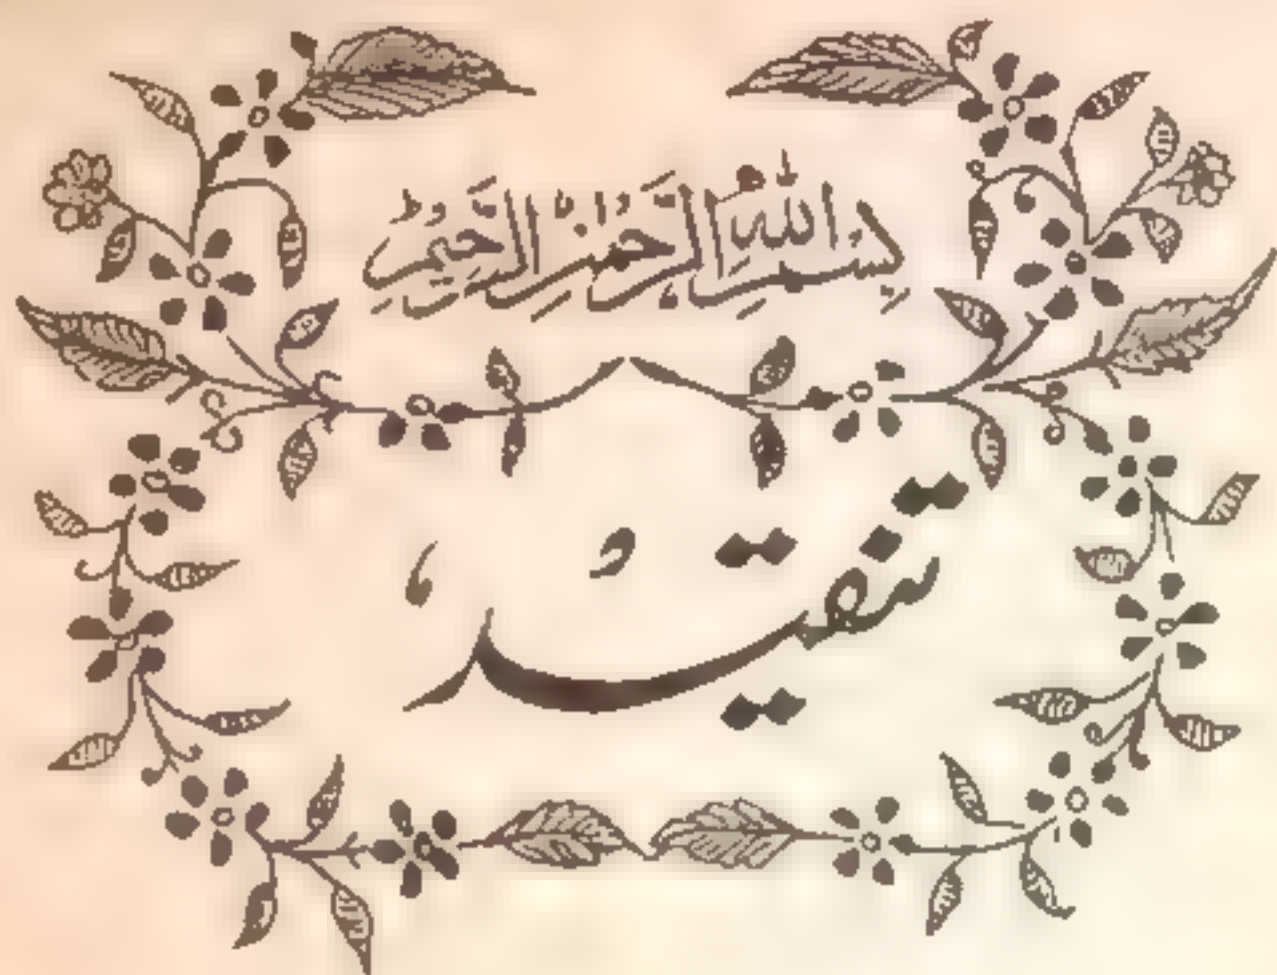 بِسْمِ اللّٰهِ الرَّحْمٰنِ الرَّحِيْمِ
تنقید